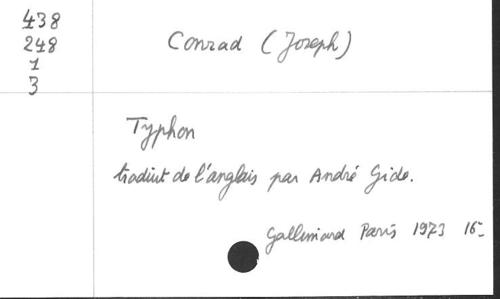 438
248
1
3
Conrad (Joseph)
Typhon
traduit de l'anglais par André Gide.
Gallimard Paris 1973 16-